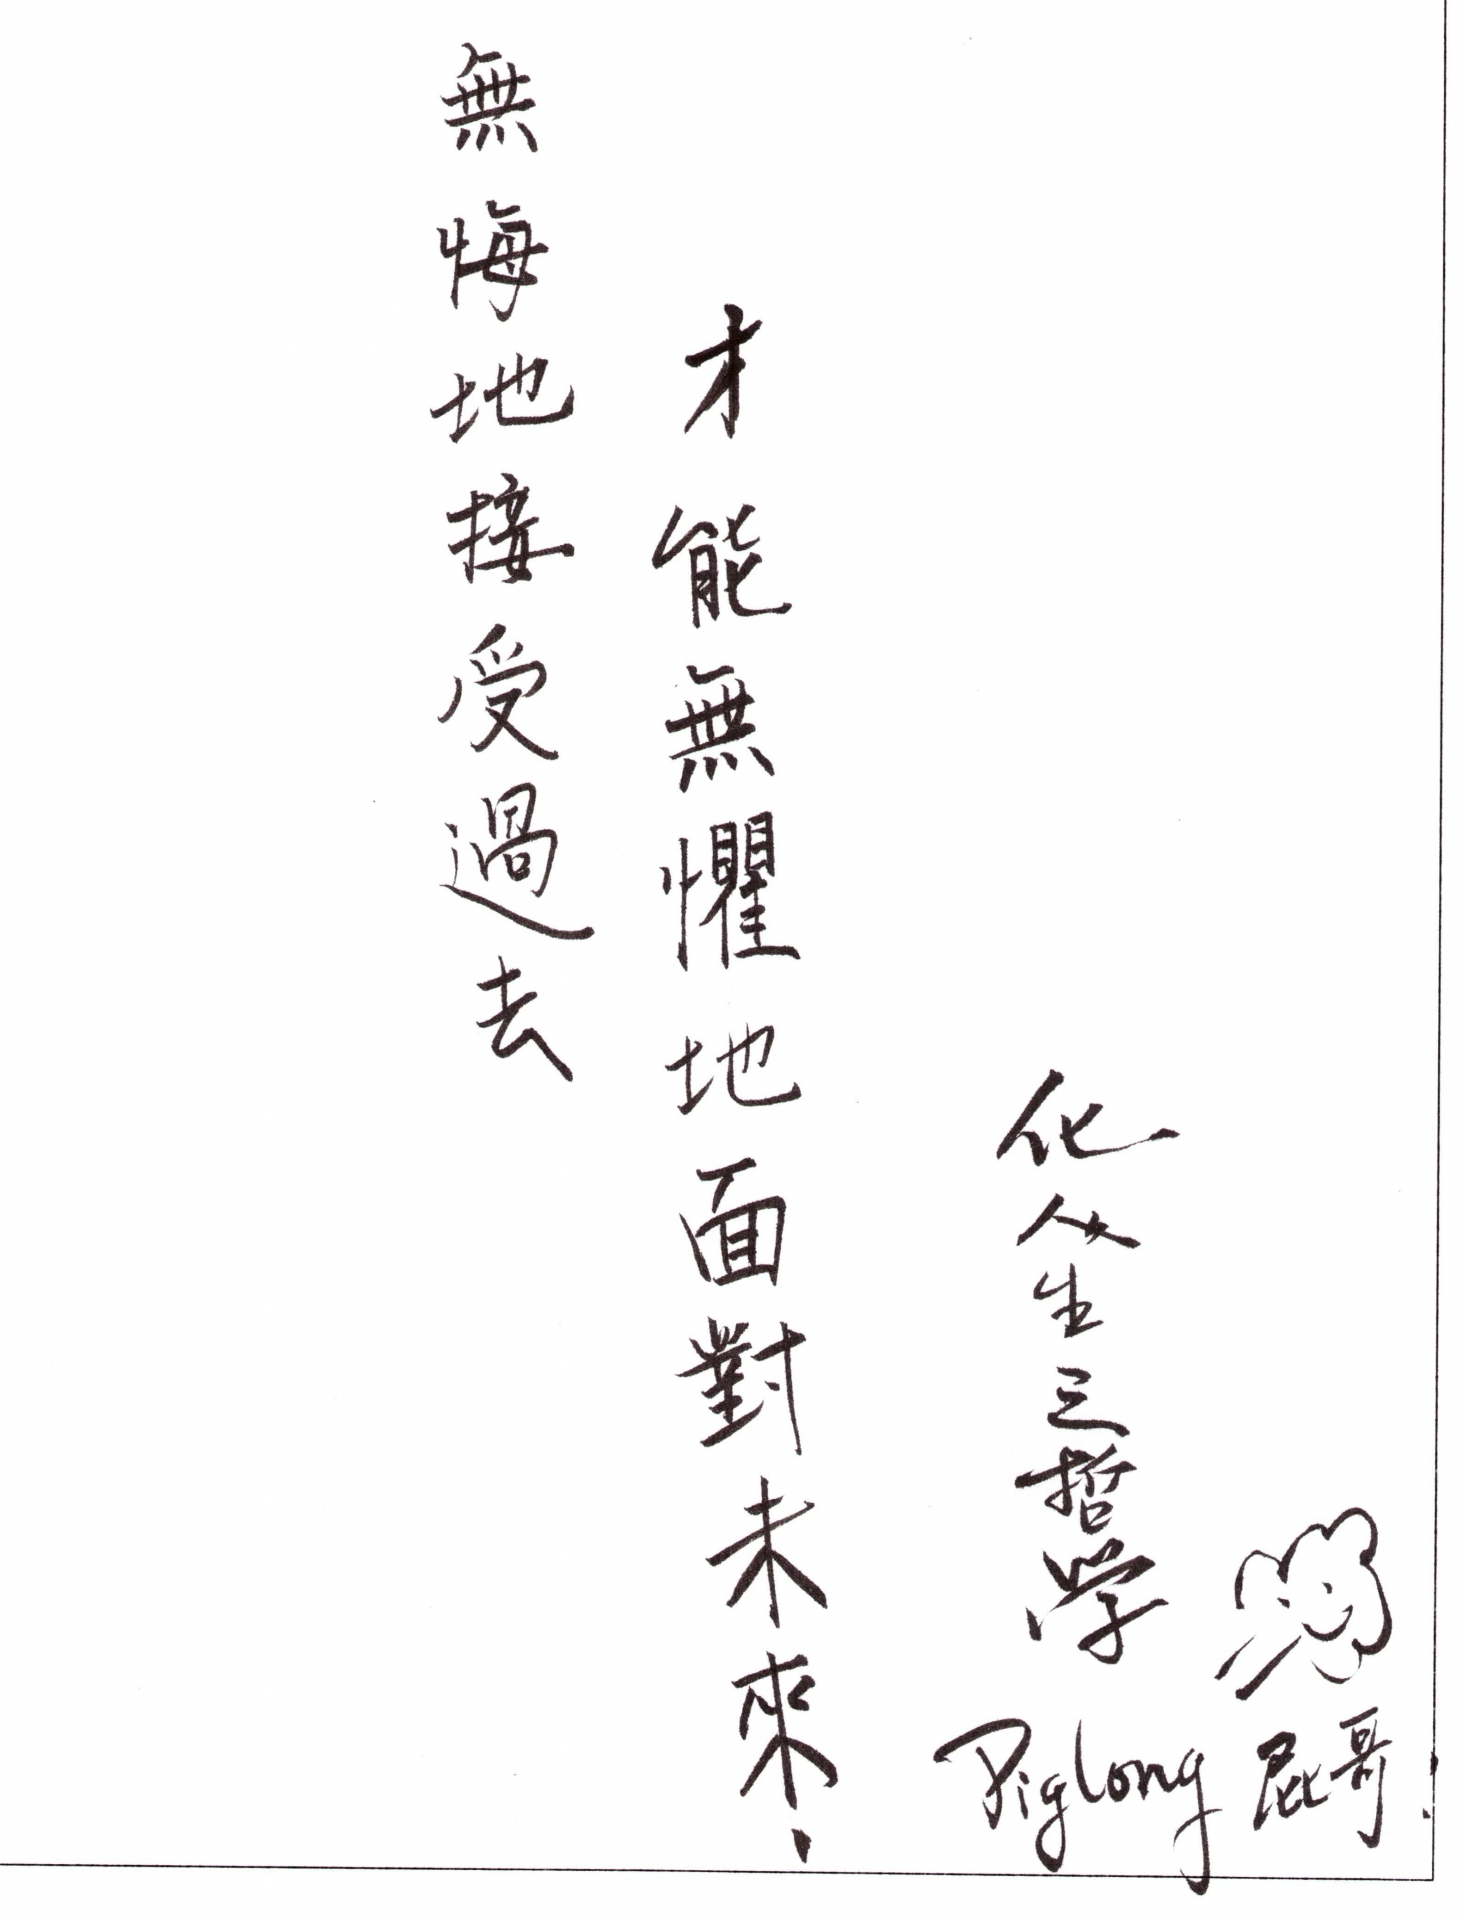 無悔地接受過去
才能無懼地面對未來！
化人生之哲学
Piglong 屁哥！